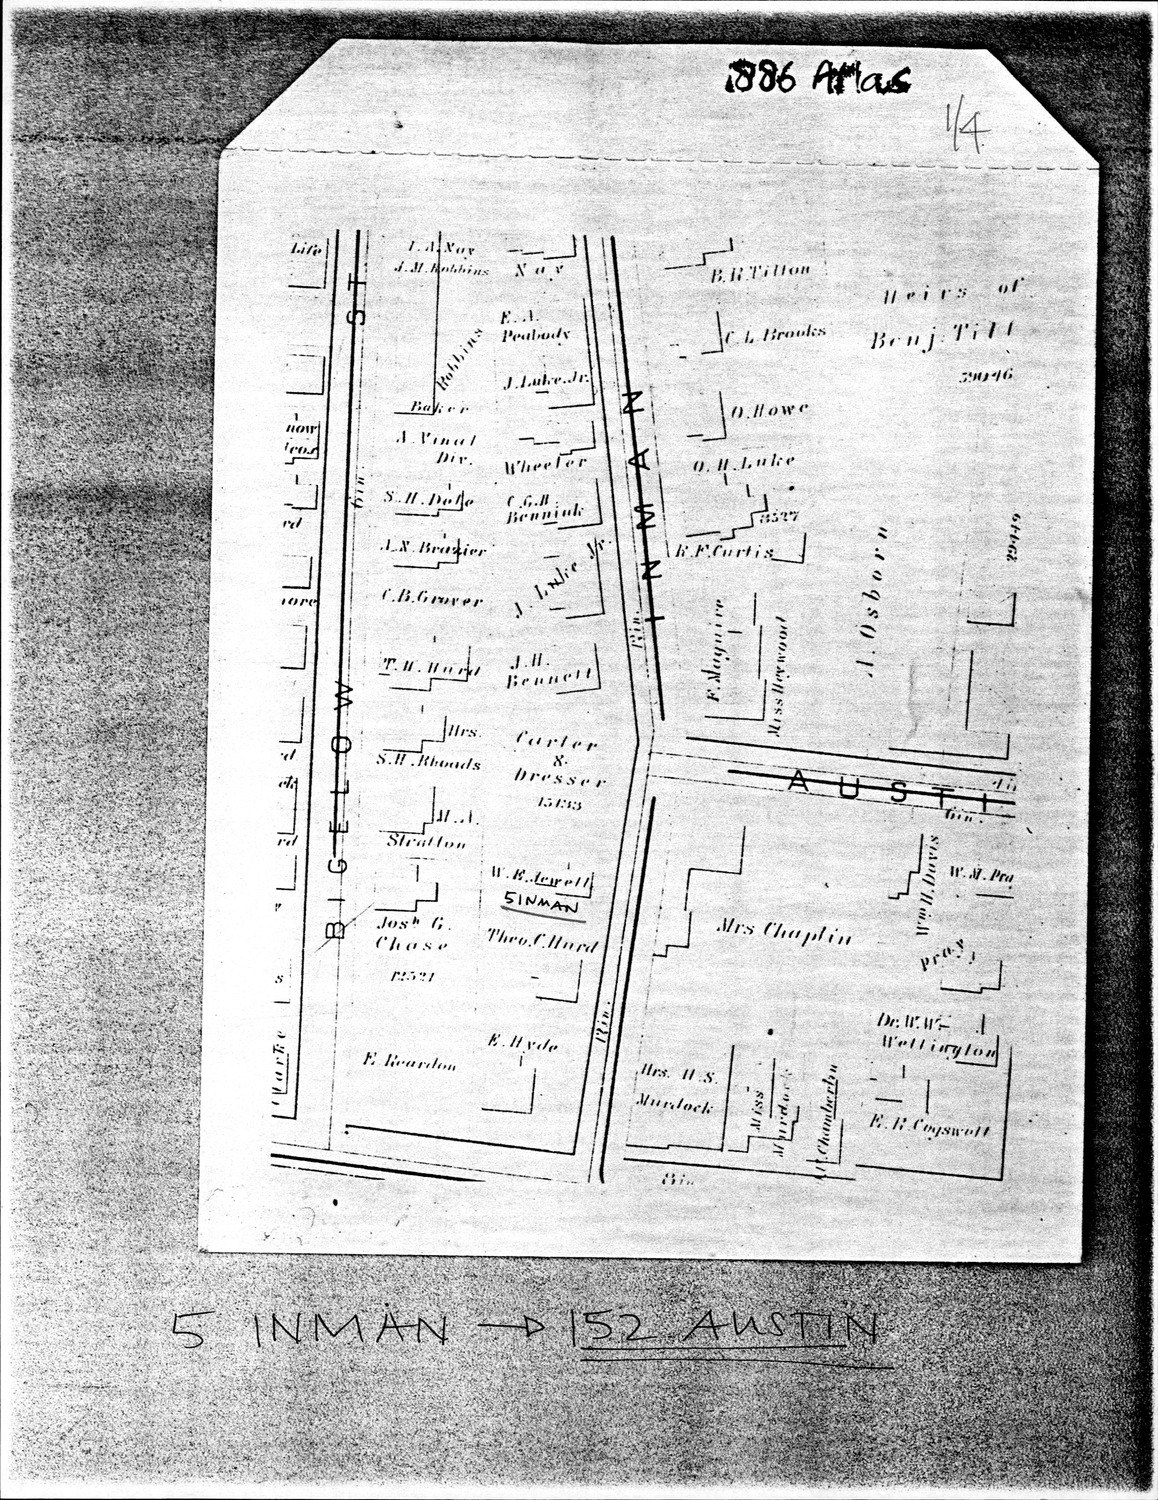 1886 Atlas
1/4
Life
ST
J.M. Robbins
Nay
Robbins
Baker
A. Vinal
Div.
S.H. Dole
A.N. Brazier
C.B. Grover
T.H. Hurd
Mrs.
S.H. Rhoads
M.A.
Stratton
Josh G.
Chase
12521
E. Reardon
BIGELOW
6in
E.A.
Peabody
J. Luke Jr.
Wheeler
C.G.H.
Bennink
J. Luke Jr.
J.H.
Bennett
Carter
&
Dresser
15433
W.E. Jewell
5 INMAN
Theo. C. Hurd
E. Hyde
INMAN
B.R. Tilton
C.L. Brooks
O. Howe
O.H. Luke
8527
R.F. Curtis
F. Maguire
Miss Heywood
Heirs of
Benj. Tilt
39046
A. Osborn
39449
AUSTI
6in.
Mrs Chaplin
Wm H. Davis
W.M. Pra
Pray
Dr. W.W.
Wellington
E.R. Cogswell
Mrs. H.S.
Murdock
Miss
Murdock
Chamberlin
8in
5 INMAN → 152 AUSTIN